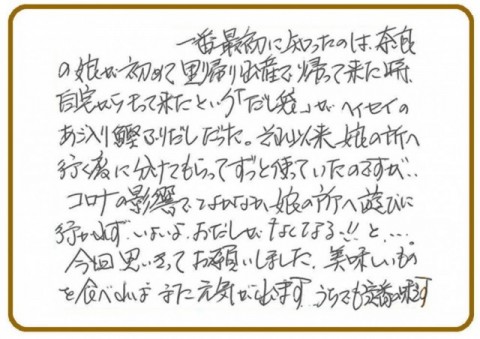 一番最初に知ったのは、奈良
の娘が初めて里帰り出産で帰って来た時、
自宅からもって来たという「だし袋」がヘイセイの
あ入り鰹ふりだしだった。それ以来、娘の所へ
行く度に分けてもらってずっと使っていたのですが‥
コロナの影響で、なかなか娘の所へ遊びに
行かれず、いよいよおだしがなくなる!!と‥‥
今回思いきってお願いしました。美味しいもの
を食べればまた元気が出ます